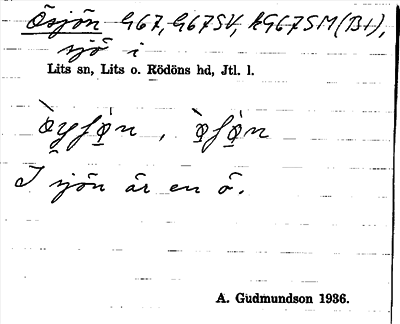 Ösjön G67, G67SV, kG67SM(B+),
sjö i
Lits sn, Lits o. Rödöns hd, Jtl. l.
I sjön är en ö.
A. Gudmundson 1936.